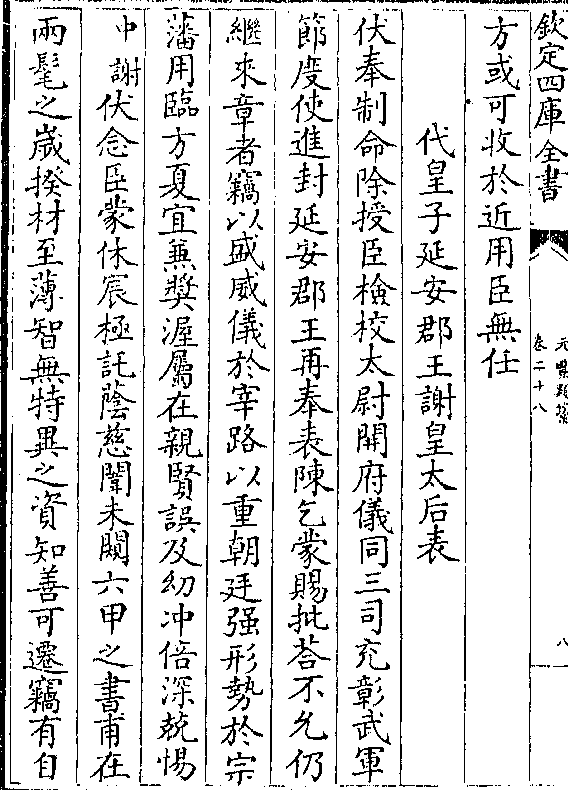 欽定四庫全書
元豐類藁
卷二十八
八
方或可收於近用臣無任
代皇子延安郡王謝皇太后表
伏奉制命除授臣檢校太尉開府儀同三司充彰武軍
節度使進封延安郡王再奉表陳乞蒙賜批荅不允仍
繼來章者竊以盛威儀於宰路以重朝廷强形勢於宗
藩用臨方夏宜兼奬渥屬在親賢誤及幼冲倍深兢惕
中謝伏念臣蒙休宸極託蔭慈闈未闚六甲之書甫在
兩髦之歲揆材至薄智無特異之資知善可遷竊有自